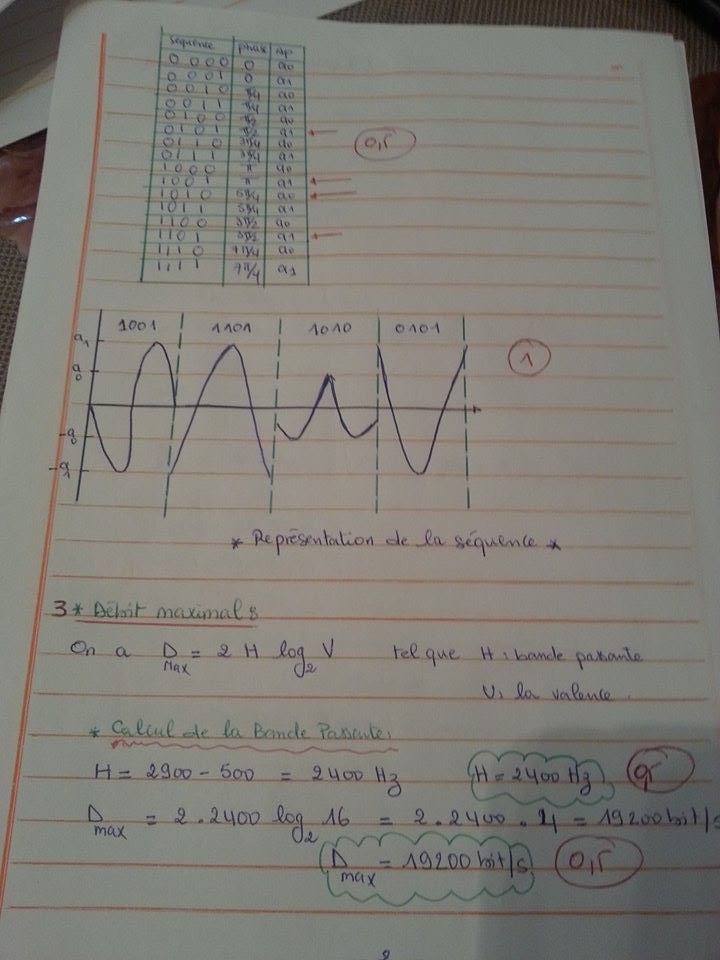 séquence phase ap
0 0 0 0 0 a0
0 0 0 1 0 a1
0 0 1 0 π/4 a0
0 0 1 1 π/4 a1
0 1 0 0 π/2 a0
0 1 0 1 π/2 a1
0 1 1 0 3π/4 a0
0 1 1 1 3π/4 a1
1 0 0 0 π a0
1 0 0 1 π a1
1 0 1 0 5π/4 a0
1 0 1 1 5π/4 a1
1 1 0 0 3π/2 a0
1 1 0 1 3π/2 a1
1 1 1 0 7π/4 a0
1 1 1 1 7π/4 a1
0,5
1001 1101 1010 0101
a1
a0
-a0
-a1
1
* Représentation de la séquence *
3 * Débit maximal :
On a D Max = 2 H log2 V tel que H : bande passante
V : la valence.
* Calcul de la Bande Passante :
H = 2900 - 500 = 2400 Hz H = 2400 Hz
D max = 2 . 2400 log2 16 = 2 . 2400 . 4 = 19200 bit/s
D max = 19200 bit/s 0,5